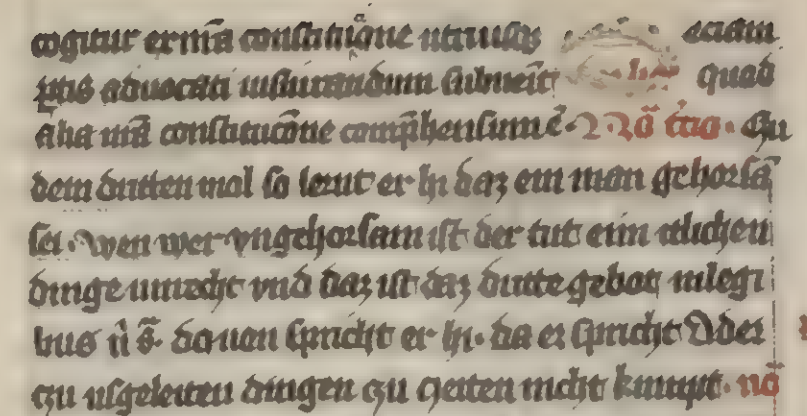 cogitur ex nr̄a constitutiane utriusqꝫ eciam
ptis aduocati iusiurandum subuenit quod
alia nr̄a constitucōne comp̄hensum ē. Nō t̄cia. Czu
dem dritten mol so lernt er hi daz ein man gehorsā
sei. Wen wer vngehorsam ist der tut eim itlichen
dinge unrecht vnd daz ist daz dritte gebot in legi
bus n̄ s̄. dauon spricht er hi. da er spricht Oder
czu usgeleiten dingen czu czeiten nicht kumpt. nō